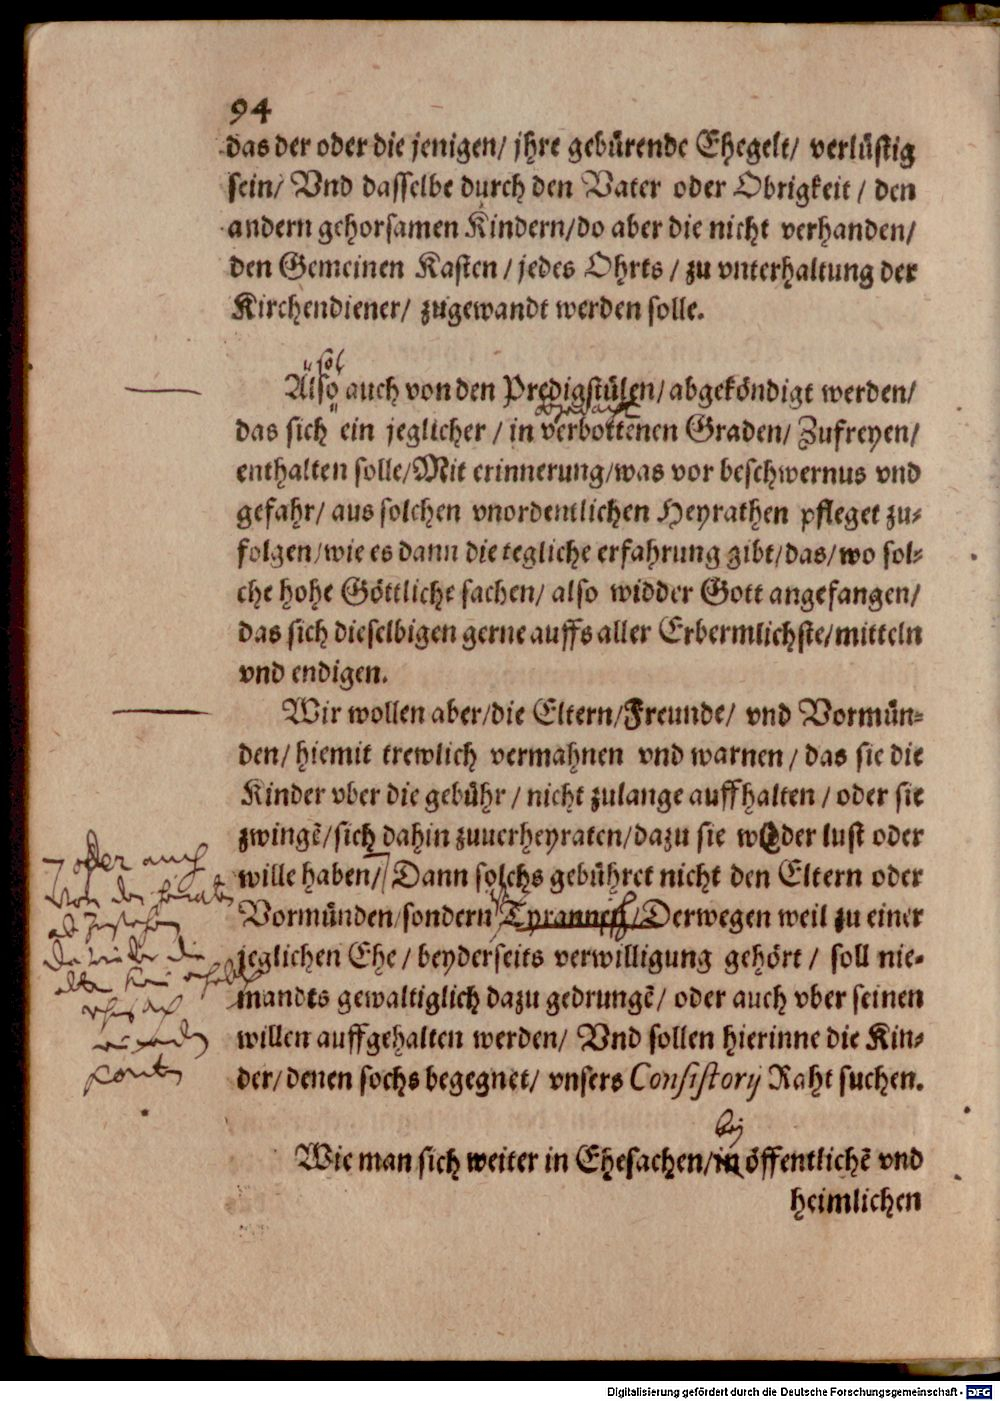 94
das der oder die jenigen/ jhre gebürende Ehegelt/ verlüstig
sein/ Vnd dasselbe durch den Vater oder Obrigkeit / den
andern gehorsamen Kindern/do aber die nicht verhanden/
den Gemeinen Kasten / jedes Ohrts / zu vnterhaltung der
Kirchendiener/ zugewandt werden solle.
sol
Also auch von den Predigstülen/ abgeköndigt werden/
das sich ein jeglicher / in verbottenen Graden/ Zufreyen/
enthalten solle/Mit erinnerung/was vor beschwernus vnd
gefahr/ aus solchen vnordentlichen Heyrathen pfleget zu⸗
folgen/wie es dann die tegliche erfahrung gibt/das/wo sol⸗
che hohe Göttliche sachen/ also widder Gott angefangen/
das sich dieselbigen gerne auffs aller Erbermlichste/mitteln
vnd endigen.
Wir wollen aber/die Eltern/Freunde/ vnd Vormün⸗
den/ hiemit trewlich vermahnen vnd warnen / das sie die
Kinder vber die gebühr / nicht zulange auffhalten / oder sie
zwingē/sich dahin zuuerheyraten/dazu sie weder lust oder
wille haben/ Dann solchs gebühret nicht den Eltern oder
Vormünden/sondern Tyrannen/Derwegen weil zu einer
jeglichen Ehe / beyderseits verwilligung gehört / soll nie⸗
mandts gewaltiglich dazu gedrungē/ oder auch vber seinen
willen auffgehalten werden/ Vnd sollen hierinne die Kin⸗
der/ denen sochs begegnet/ vnsers Consistorij Raht suchen.
oder auch
von der
bey
Wie man sich weiter in Ehesachen/in öffentlichē vnd
heimlichen
Digitalisierung gefördert durch die Deutsche Forschungsgemeinschaft - DFG